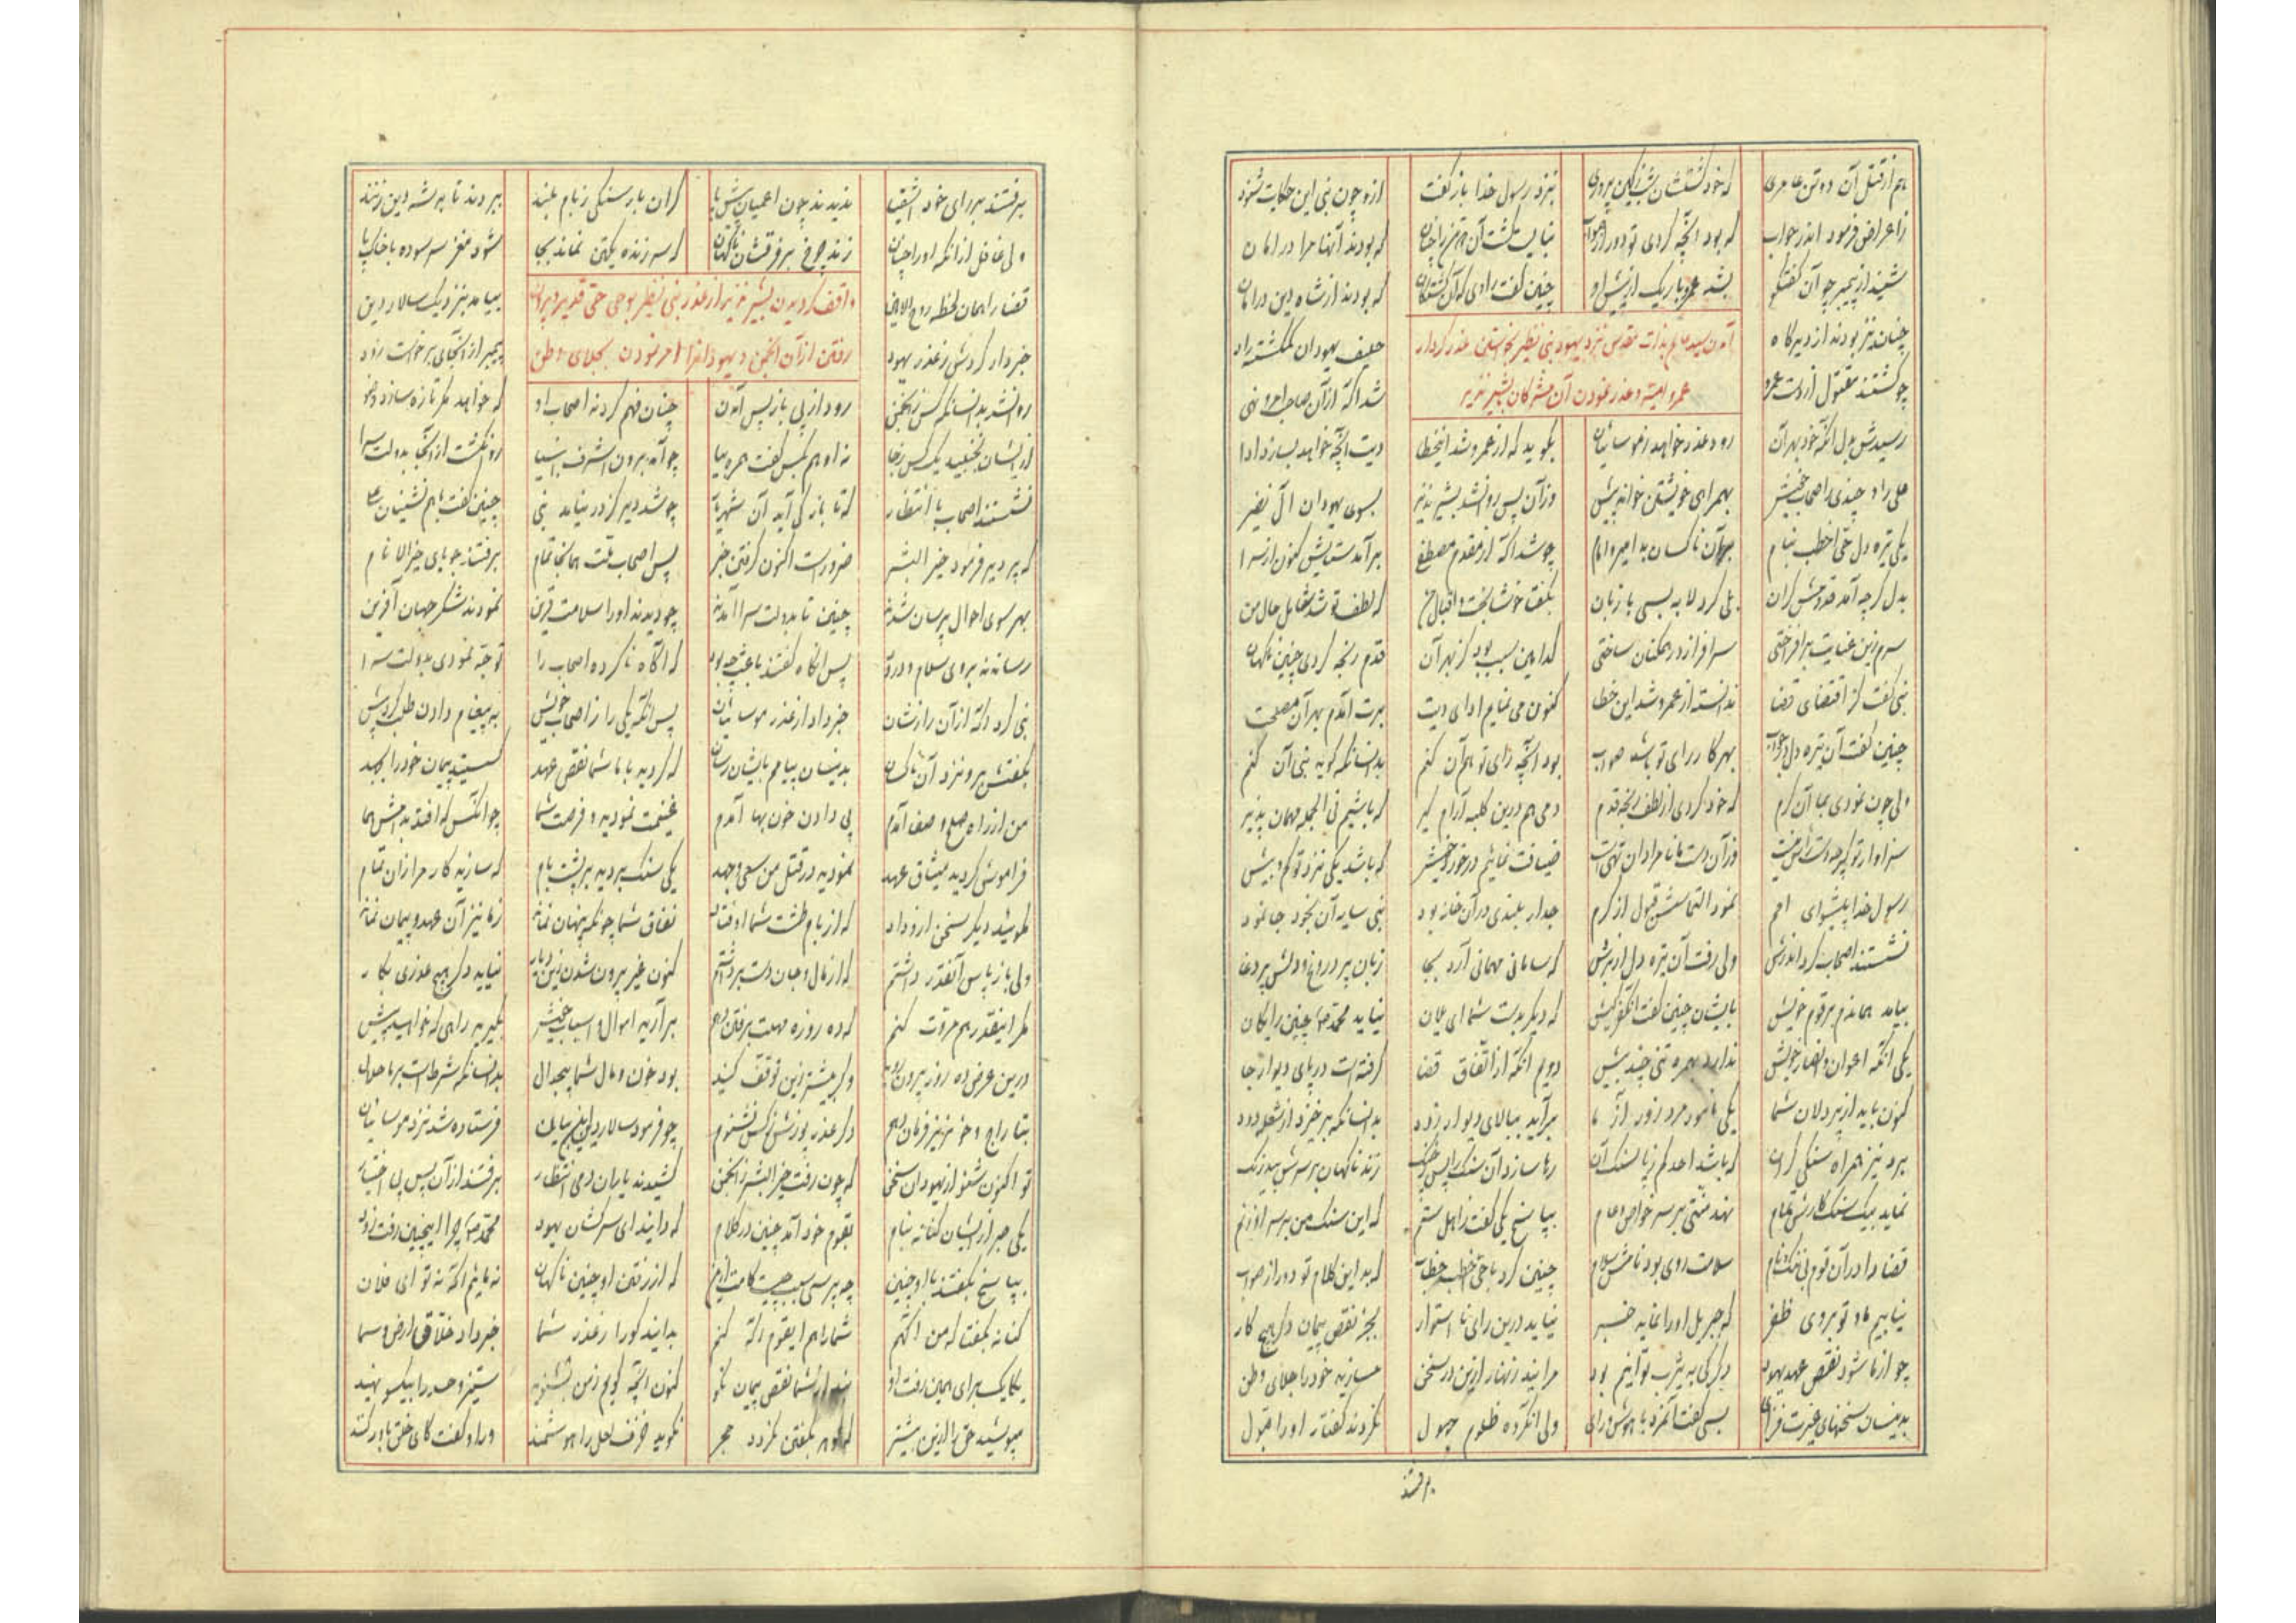 هم از قتل آن دو تن عامری که خود کشتشان بر نزد رسول خدا باز گفت ازو چون نبی این حکایت شنود
ز اعراض فرمود اندر جواب که بود آنچه کردی تو دور از صواب نبایست کشت آن که بودند آنها مرا در امان
شنید از پیمبر چو آن گفتگو بشد عمرو باریک از پیش او چنین گفت راوی که آن کشتگان که بودند از شاه دین در امان
چنان نیز بودند از دیرگاه حلیف یهودان گمگشته راه
آمدن سید عالم بذات مقدس نزد یهود بنی نظیر بخواستن عذر کردار
چو گشتند مقتول از دست عمرو شد آگه از آن صاحب امر و نهی
عمرو امیه و عذر نمودن آن مشرکان بشیر نذیر
رسیدش بدل آنکه خود بهر آن رود عذر خواهد ز موسائیان بگوید که از عمرو شد این خطا دیت آنچه خواهد بسازد ادا
علی را و چندی ز اصحاب خویش بهمراهی خویشتن خواند پیش وزان پس روان شد بشیر نذیر بسوی یهودان آل نضیر
یکی تیره دل حی اخطب بنام بر آن ناکسان بد امیر و امام چو شد آگه از مقدم مصطفی بر آمد ستایش کنون از سرا
بدل گرچه آمد قدومش گران ولی کرد لابه بسی با زبان بگفتا خوشا بخت و اقبال من که لطف تو شد شامل حال من
سرم زین عنایت برافراختی سرافراز در همکنان ساختی کدامین سبب بود کز بهر آن قدم رنجه کردی چنین ناگهان
نبی گفت کز اقتضای قضا ندانسته از عمرو شد این خطا کنون می نمایم ادای دیت برت آمدم بهر آن مصلحت
چنین گفت آن تیره دل در جواب بهر کار رای تو باشد صواب بود آنچه رای تو هم آن کنم بدانسانکه گوید نبی آن کنم
ولی چون نمودی بما آن کرم که خود کردی از لطف رنجه قدم دمی هم درین کلبه آرام گیر که باشیم فی الجمله مهمان پذیر
سزاوار تو گرچه وزان دست ما نامرادان تهیست ضیافت نمائیم در خورد خویش که باشد یکی نزد تو کم و بیش
رسول خدا پیشوای امم نمود التماسش قبول از کرم جدار بلندی در آن خانه بود نبی سایه آن بخود جا نمود
نشستند اصحاب گرد اندرش ولی رفت آن تیره دل از برش که سامانی مهمانی آرد بجا زبان پر دروغ و دلش پر دغا
بیامد همانم بر قوم خویش بایشان چنین گفت آن کفر کیش که دیگر بدست شما ای یلان نیاید محمد چنین رایگان
یکی آنکه اعوان و انصار خویش ندارد بهمره تنی چند بیش دویم آنکه از اتفاق قضا گرفتست در پای دیوار جا
کنون باید از پردلان شما یکی نامور مرد زور آزما برآید ببالای دیوار زود بدانسانکه بر خیزد از شعله دود
برد نیز همراه سنگی گران که باشد احد کم ز پا سنگ آن رها سازد آن سنگ را زند ناگهان بر سرش بیدرنگ
نماید بیک سنگ کارش تمام نهد منتی بر سر خاص و عام بپاسخ یکی گفت ز اهل ستم که این سنگ من بر سر او زنم
قضا را در آن قوم بی ننگ و نام سلامت روی بود نامش سلام چنین کرد با حی اخطب خطاب که بد این کلام تو دور از صواب
نیابیم ما و تو بر وی ظفر که جبریل او را نماید خبر نیاید درین رای نا استوار بجز نقض پیمان دگر هیچ کار
چو از ما شود نقض عهد یهود دگر کی به یثرب توانیم بود مرانید زنهار ازین در سخن مسازید خود را جلای وطن
بدینسان سخنهای عبرت فزای بسی گفت آنمرد با هوش و رای ولی آنگروه ظلوم جهول نکردند گفتار او را قبول
برفتند
برفتند بر رای خود اشقیا ندیدند چون اعمیان پیش پا گران بار سنگی ز بام بلند ببردند تا بر شه دین زنند
ولی غافل از آنکه او را زند چرخ بر فرقشان ناگهان که سر زنده یکتن نماند بجا شود مغز سر سوده با خاک پا
قضا را همان لحظه روح الامین بیامد بنزدیک سالار دین
واقف گردیدن بشیر نذیر از عذر بنی نظیر بوحی حق قدیر و بیرون
خبردار کردش ز عذر یهود پیمبر از آنجای برخواست زود
رفتن از آن انجمن و یهود را امر نمودن بجلای وطن
روان شد بدانسانکه کس ز انجمن رود از پی باز پس آمدن چنان فهم کردند اصحاب او که خواهد مگر تازه سازد وضو
از ایشان نجنبید یک کس ز جا نه او هم بکس گفت همره بیا چو آمد برون اشرف انبیا روان گشت از آنجا بدولت سرا
نشستند اصحاب با انتظار که تا باز کی آید آن شهریار چو شد دیر کز در نیامد نبی چنین گفت با همنشینان علی
که پر دیر فرمود خیر البشر ضرورست اکنون گرفتن خبر پس اصحاب گشت همانجا تمام برفتند جویای خیر الانام
بهر سوی احوال پرسان شدند چنین تا بدولت سرا آمدند چو دیدند او را سلامت قرین نمودند شکر جهان آفرین
رساندند بر وی سلام و درود پس آنگاه گفتند باعث چه بود که آگاه ناکرده اصحاب را توجه نمودی بدولت سرا
نبی کرد آگه از آن رازشان خبر داد از عذر موسائیان پس آنگه یکی را ز اصحاب خویش به پیغام دادن طلب کرد پیش
بگفتش برو نزد آن ناکسان بدینسان پیامم بایشان رسان که کردید با ما شما نقض عهد گسستید پیمان خود را بجهد
من از راه صلح و صفا آمدم پی دادن خون بها آمدم غنیمت نمودید و فرصت شما چو آنکس که افتد بدامش هما
فراموش کردید میثاق عهد نمودید در قتل من سعی و جهد یکی سنگ بردید بر پشت بام که سازید کار مرا زان تمام
مگوئید دیگر سخن از وداد که از بام طشت شما اوفتاد نفاق شما چونکه پنهان نماند ز ما نیز آن عهد و پیمان نماند
ولی باز پاس آنقدر داشتم که از مال و جان دست برداشتم کنون غیر بیرون شدن زین دیار نیاید دگر هیچ عذری بکار
مگر اینقدر هم مروت کنم که ده روزه مهلت برفتن دهم برآرید اموال و اسباب خویش بگیرید راهی که خواهید پیش
درین عرض ده روز بیرون روید وگر بیشتر زین توقف کنید بود خون و مال شما بیجدال بدانسانکه شرطست بر ما حلال
بتاراج و خونریز فرمان دهم دگر عذر پوزش ز کس نشنوم چو فرمود سالار دین این بیان فرستاده شد نزد موسائیان
تو اکنون شنو از یهودان سخن که چون رفت خیر البشر ز انجمن کشیدند یاران دمی انتظار برفتند از آن پس پی اختیار
یکی حبر از ایشان کنانه بنام بقوم خود آمد چنین در کلام که دانید ای سرکشان یهود محمد چرا اینچنین رفت زود
بپاسخ بگفتند با او چنین چه پرسی سبب چیست که از رفتن او چنین ناگهان نه مائیم آگه نه تو ای فلان
کنانه بگفتا که من آگهم شما را هم ایقوم آگه کنم بدانید کو را ز عذر شما خبر داد خلاق ارض و سما
یکایک برای همین رفت او شد از شما نقض پیمان نکو کنون آنچه گویم ز من بشنوید ستیز و حسد را بیکسو نهید
مپوشید حق را ازین بیشتر بگفتن نگردد حجر نگوید خزف لعل را هوشمند ورا و گفت کای حق باور کنند